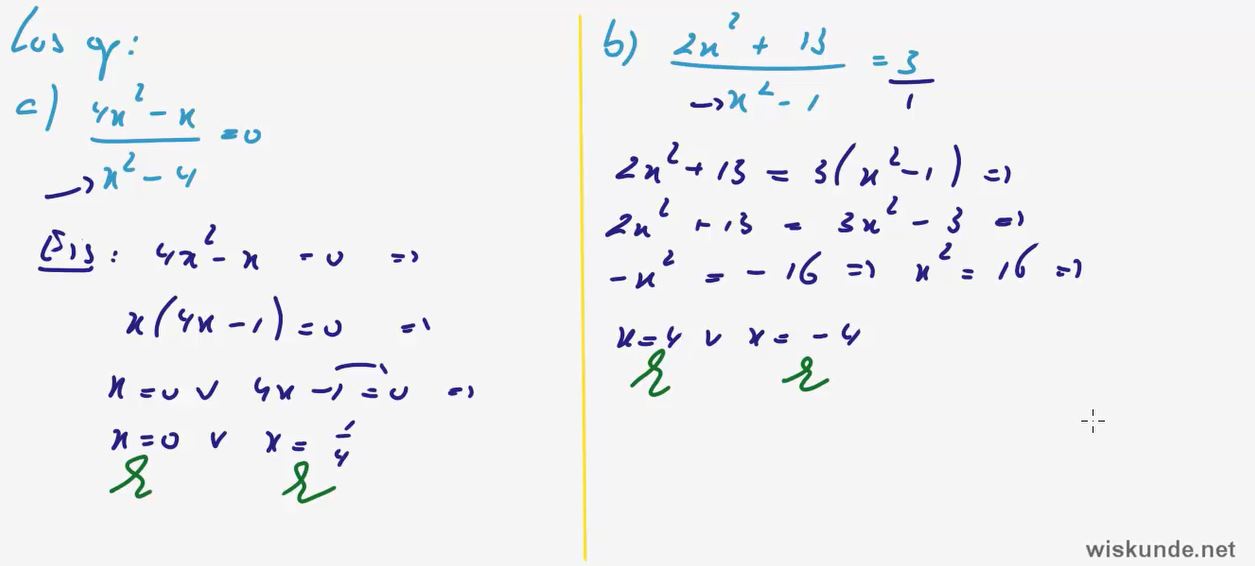 Los op:
a) (4x² - x) / (x² - 4) = 0
→
Eis: 4x² - x = 0 ⇒
x(4x - 1) = 0 ⇒
x = 0 ∨ 4x - 1 = 0 ⇒
x = 0 ∨ x = 1/4
b) (2x² + 13) / (x² - 1) = 3/1
→
2x² + 13 = 3(x² - 1) ⇒
2x² + 13 = 3x² - 3 ⇒
-x² = -16 ⇒ x² = 16 ⇒
x = 4 ∨ x = -4
wiskunde.net